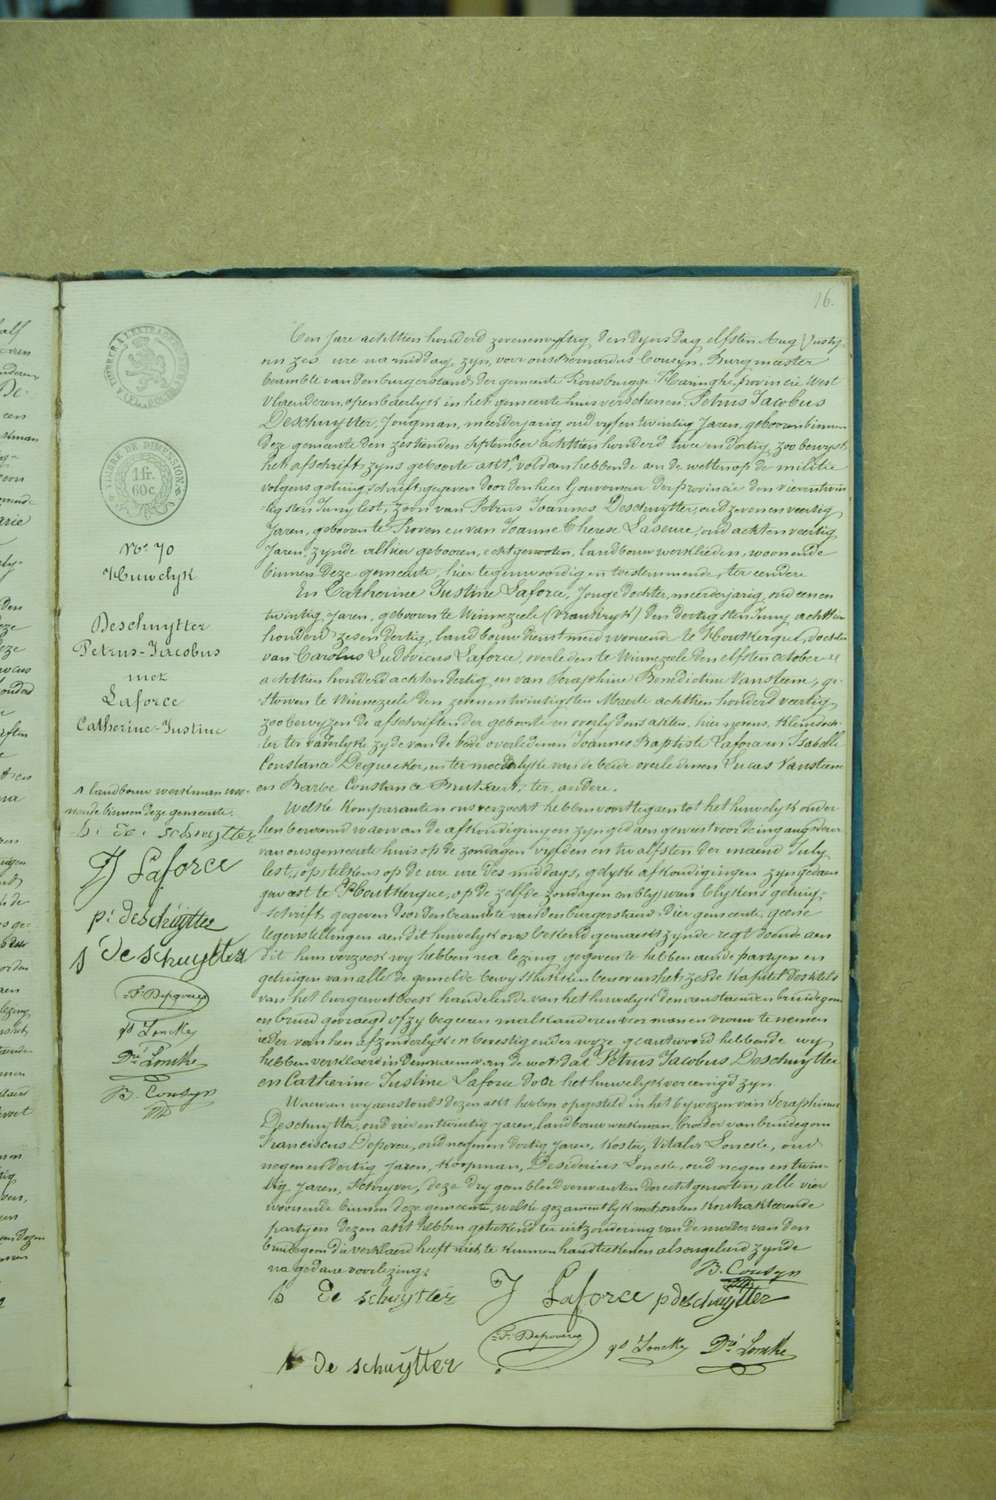 16.
1 fr.
60 c.
TIMBRE DE DIMENSION
No. 70
Huwelyk
Deschuytter
Petrus-Jacobus
met
Laforce
Catherine-Justine
binnen deze gemeente.
De schuytter
J Laforce
p. deschuytter
S De schuytter
F. Depoorter
B. Cousyn
Een jare achttien honderd zevenenvyftig, den dynsdag elfsten Augusty
ten zes ure namiddag, zyn, voor ons Bernardus Cousyn, Burgmeester
beambte van den burgerstand der gemeente Rousbrugge Haringhe, provincie West
Vlaenderen, openbaerlyk in het gemeente huis verschenen Petrus Jacobus
Deschuytter, Jongman, meerderjarig, oud vyfentwintig Jaren, geboren binnen
deze gemeente den zestienden September achttien honderd twee en dertig, zoo bewyst
het afschrift zyns geboorte akt, voldaen hebbende aen de wetten op de militie
volgens getuigschrift gegeven door den heer Gouverneur der provincie den vierentwin
tigsten Juny lest, zoon van Petrus Joannes Deschuytter, oud zevenenveertig
Jaren, geboren te Proven en van Joanne Therese Laseure, oud achtenveertig
Jaren, zynde alhier geboren, echtgenooten, landbouw werklieden, woonende
binnen deze gemeente, hier tegenwoordig en toestemmende, ter eendere
En Catherine Justine Laforce, Jonge dochter, meerderjarig, oud eenen
twintig Jaren, geboren te Winnezeele (Vrankryk) den dertigsten Juny achttien
honderd zesendertig, landbouw dienstmeid woonende te Houtkerque, dochter
van Carolus Ludovicus Laforce, overleden te Winnezeele den elfsten october
achttien honderd achtendertig en van Seraphine Benedictine Vansteene, ge-
storven te Winnezeele den zevenentwintigsten Maerte achttien honderd veertig
zoo bewyzen de afschriften der geboorte en overlydens akten, hier nevens, kleindoch-
ter ter vaderlyke zyde van de beide overledenen Joannes Baptiste Laforce en Isabelle
Constance Dequecker, en ter moederlyke van de beide overledenen Lucas Vansteene
en Barbe Constance, ter andere.
Welke komparanten ons verzocht hebben voorttegaen tot het huwelyk onder
hen beraemd waervan de afkondigingen zyn gedaen geweest voor de ingang deur
van ons gemeente huis op de zondagen vyfden en twalfsten der maend July
lest, op telkens op de ure des middags, gelyke afkondigingen zyn gedaen
geweest te Houtkerque, op de zelfde zondagen en blyvens blykens getuig-
schrift, gegeven door den beambte van den burgerstand dier gemeente, geene
tegenstellingen aen dit huwelyk ons bekend gemaekt zynde regt doende aen
dit hun verzoek wy hebben na lezing gegeven te hebben aen de partyen en
getuigen van alle de gemelde bewystukken benevens het zesde kapittel des titels
van het burger wetboek handelende van het huwelyk den aenstaenden bruidegom
en bruid gevraegd of zy begeeren malkanderen voor man en vrouw te nemen
ieder van hen afzonderlyk en bevestigender wyze geantwoord hebbende wy
hebben verklaerd in den naem van de wet dat Petrus Jacobus Deschuytter
en Catherine Justine Laforce door het huwelyk vereenigd zyn
Waervan wy aenstonds dezen akt hebben opgesteld in het bywezen van Seraphinus
Deschuytter, oud vierentwintig Jaren, landbouw werkman, broeder van bruidegom
Franciscus Depoorter, oud negenendertig Jaren, koster, Vitalis Loncke, oud
negenendertig Jaren, koopman, Desiderius Loncke, oud negenentwin-
tig Jaren, Schryver, deze dry geen bloedverwanten der echtgenooten, alle vier
woonende binnen deze gemeente, welke gezamentlyk met ons en kontrakteerende
partyen dezen akt hebben geteekend ter uitzondering van de moeder van den
bruidegom die verklaerd heeft niet te kunnen handteekenen als ongeleerd zynde
na gedane voorlezing.
B. Cousyn
De schuytter J Laforce p deschuytter
F. Depoorter
De schuytter